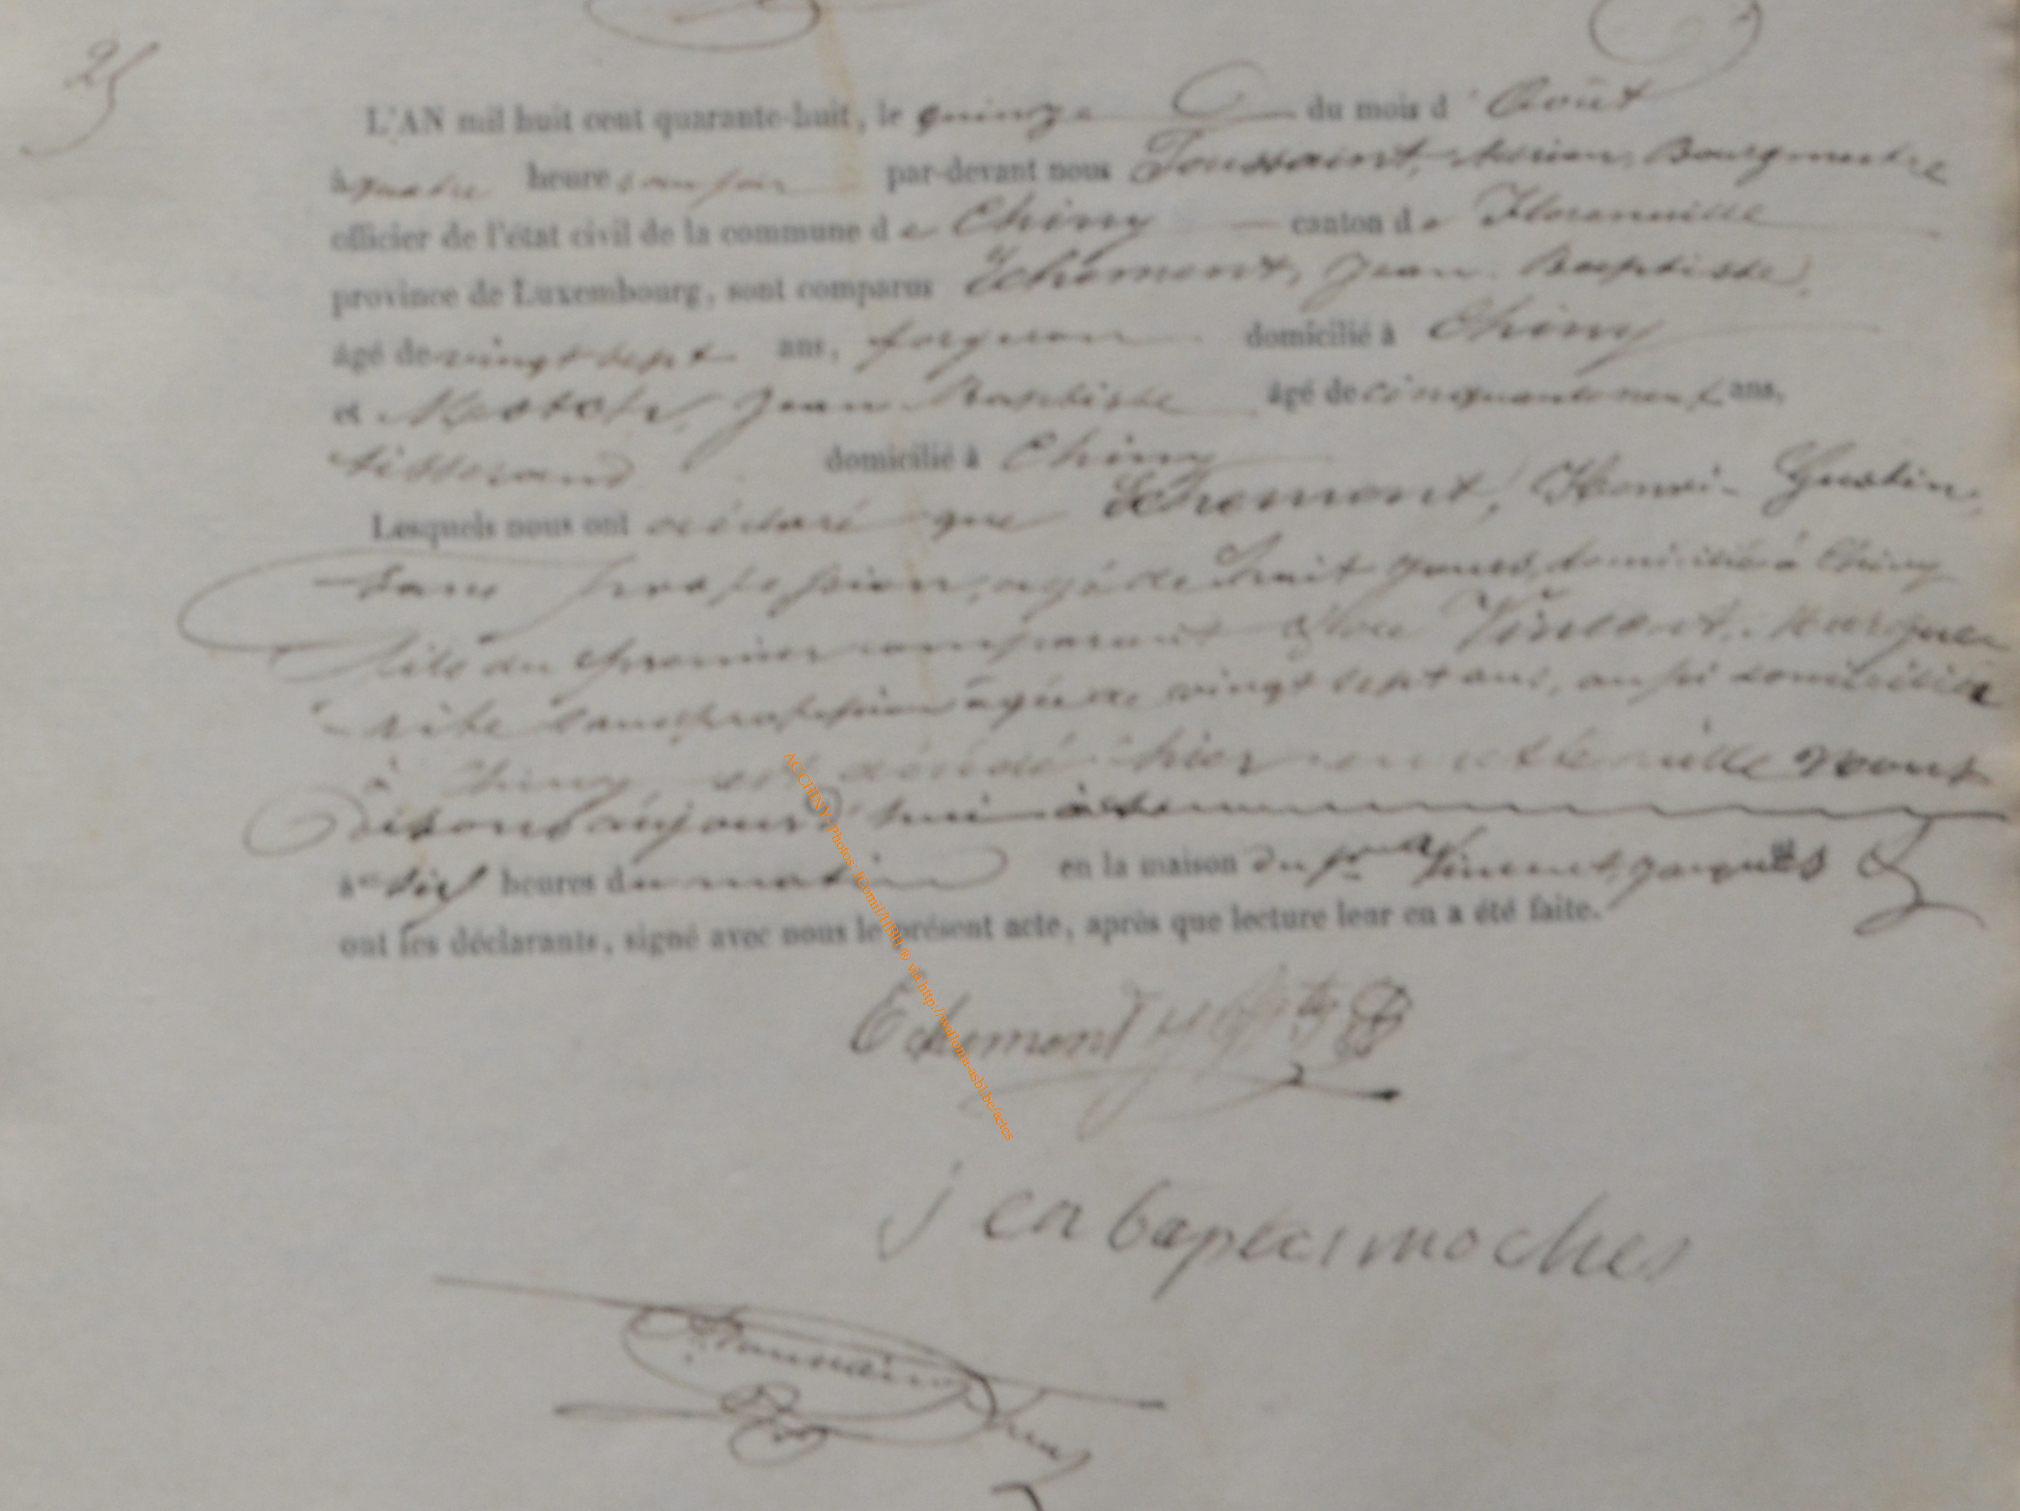 25
L'AN mil huit cent quarante-huit, le quinze du mois d'Août
à quatre heures du soir par-devant nous Toussaint, Bourgmestre
officier de l'état civil de la commune de Chiny canton de Florenville
province de Luxembourg, sont comparus Echement, Jean Baptiste,
âgé de vingt sept ans, forgeron domicilié à Chiny
et Jean Baptiste âgé de cinquante neuf ans,
tisserand domicilié à Chiny
Lesquels nous ont déclaré que Henri
sans profession, agé de huit jours, domicilié à Chiny
fils du premier comparant et de Vincent, Margue
rite sans profession agée de vingt sept ans, aussi domiciliée
à Chiny est décédé hier en cette ville nous
disons aujourd'hui
à six heures du matin en la maison du Vincent, Jacques
ont les déclarants, signé avec nous le présent acte, après que lecture leur en a été faite.
Echement
jen baptis moches
Toussaint
AC CHINY: Photos via http://wallonia-asbl.be/actes